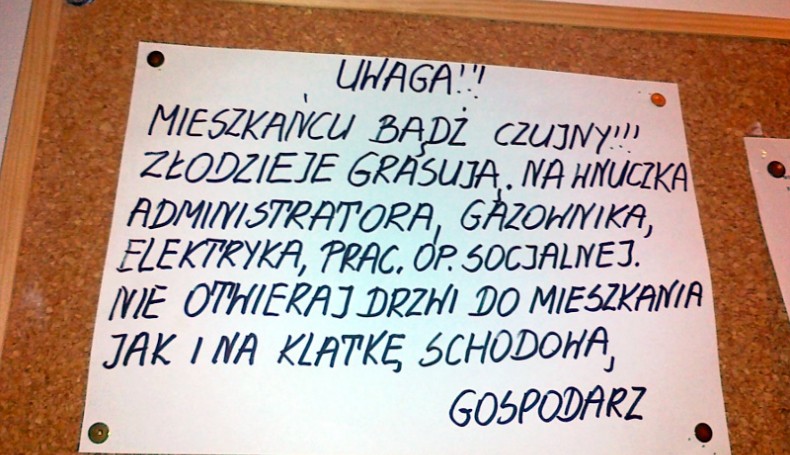 UWAGA!!!
MIESZKAŃCU BĄDŹ CZUJNY!!!
ZŁODZIEJE GRASUJĄ. NA WNUCZKA
ADMINISTRATORA, GAZOWNIKA,
ELEKTRYKA, PRAC. OP. SOCJALNEJ.
NIE OTWIERAJ DRZWI DO MIESZKANIA
JAK I NA KLATKĘ SCHODOWĄ,
GOSPODARZ